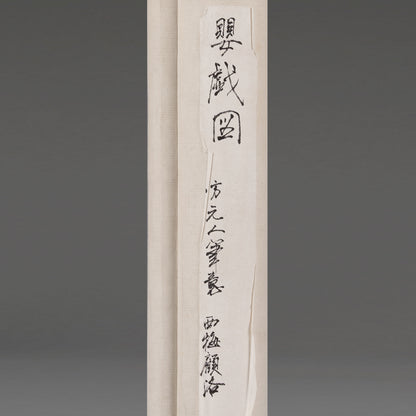 嬰戯图
仿元人筆意 西梅顧洛